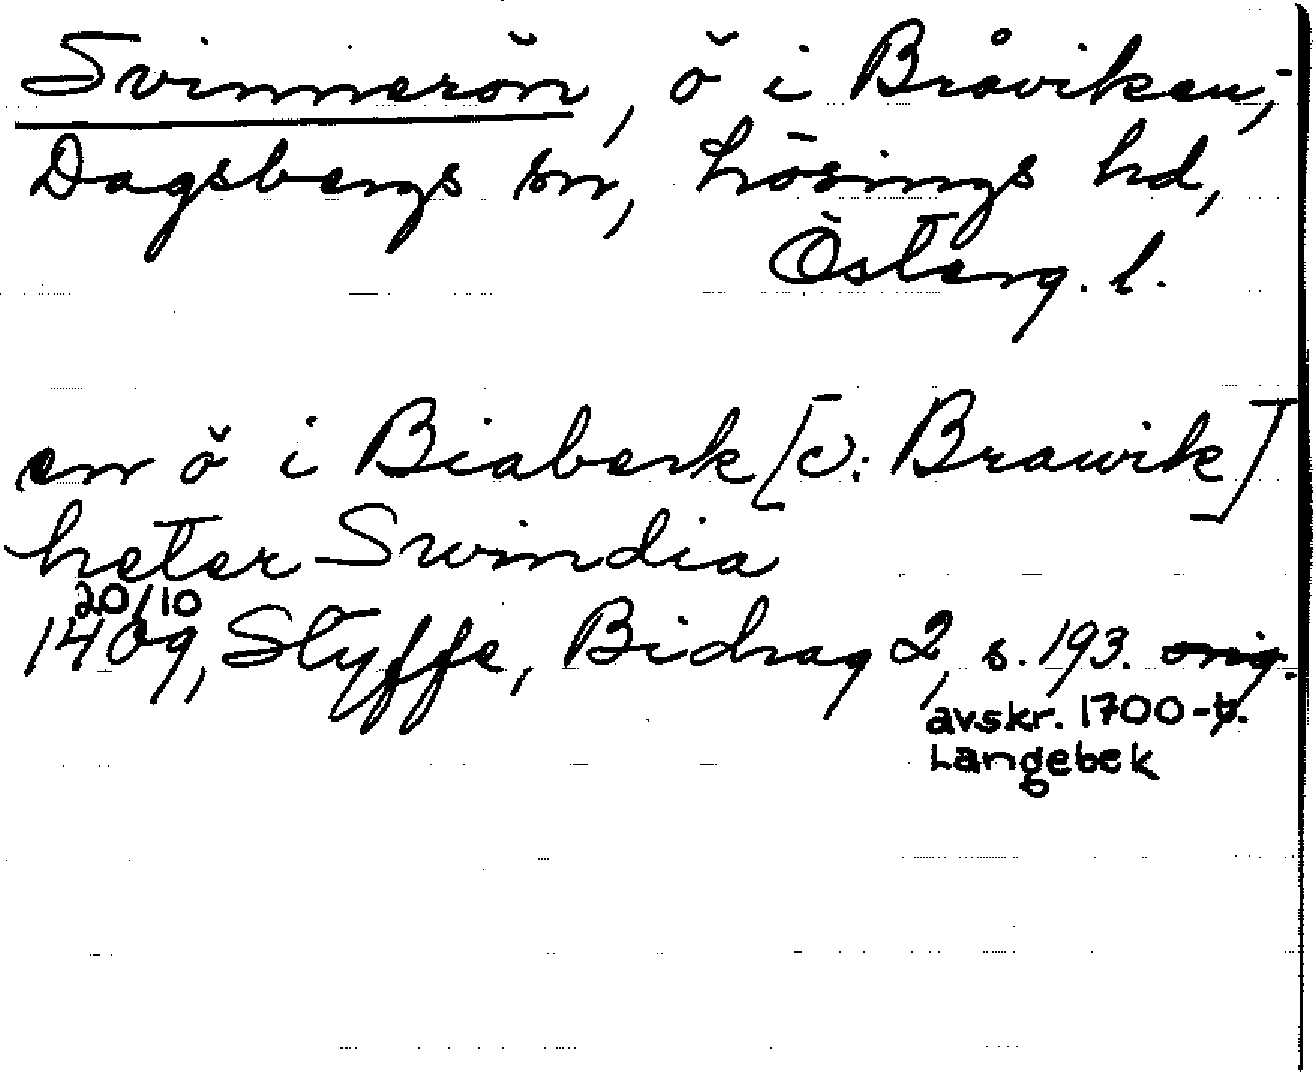 Svinnerön, ö i Bråviken,
Dagsbergs sn, Lösings hd,
Österg. l.
en ö i Biaberk [ɔ: Brawik]
heter Swindia
20/10
1409, Styffe, Bidrag 2, s. 193. orig.
avskr. 1700-t.
Langebek